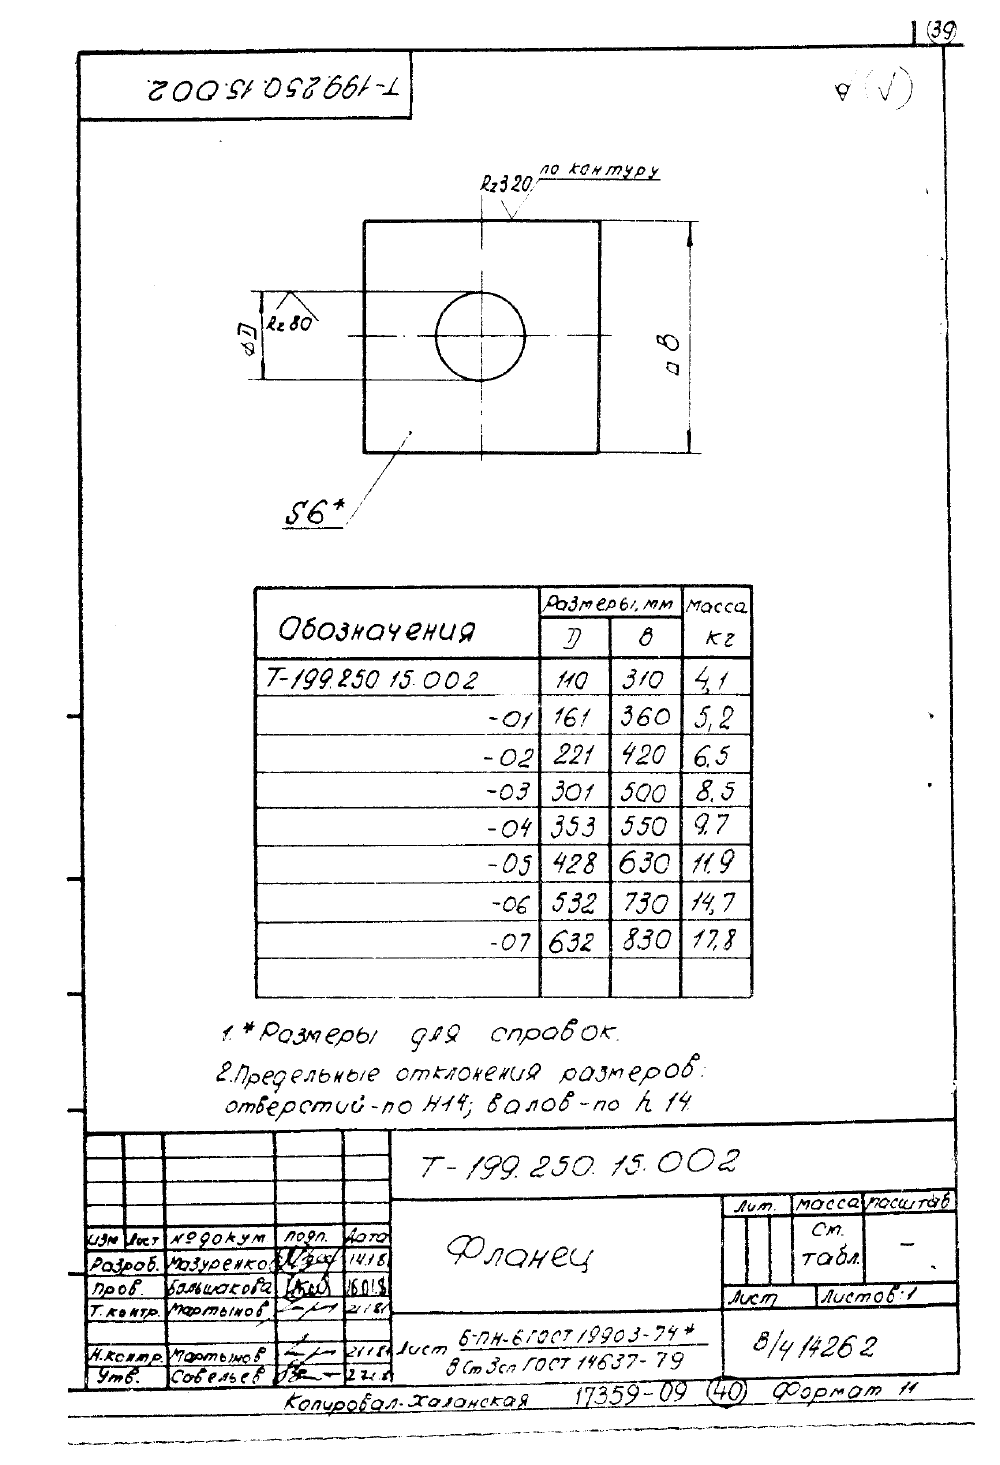 39
Т-199.250.15.002.
(√)
Rz320 по контуру
Rz 80
⌀D
□ В
S6*
Обозначения Размеры, мм Масса кг
D В
Т-199.250 15.002 110 310 4,1
-01 161 360 5,2
-02 221 420 6,5
-03 301 500 8,5
-04 353 550 9,7
-05 428 630 11,9
-06 532 730 14,7
-07 632 830 17,8
1. * Размеры для справок.
2. Предельные отклонения размеров:
отверстий - по Н14; валов - по h 14.
Т-199.250.15.002
Изм Лист № докум подп. Дата
Разраб. Мазуренко 14.1.8
Пров. Большакова 16.01.8
Т. контр. Мартынов 21.1.81
Н.контр. Мартынов 21.1.81
Утв. Савельев
Фланец
Лит. Масса Масштаб
См. табл. —
Лист Листов: 1
Лист Б-ПН-6 ГОСТ 19903-74*
ВСт3сп ГОСТ 14637-79
В/ч 14262
Копировал- Хазанская 17359-09 40 Формат 11